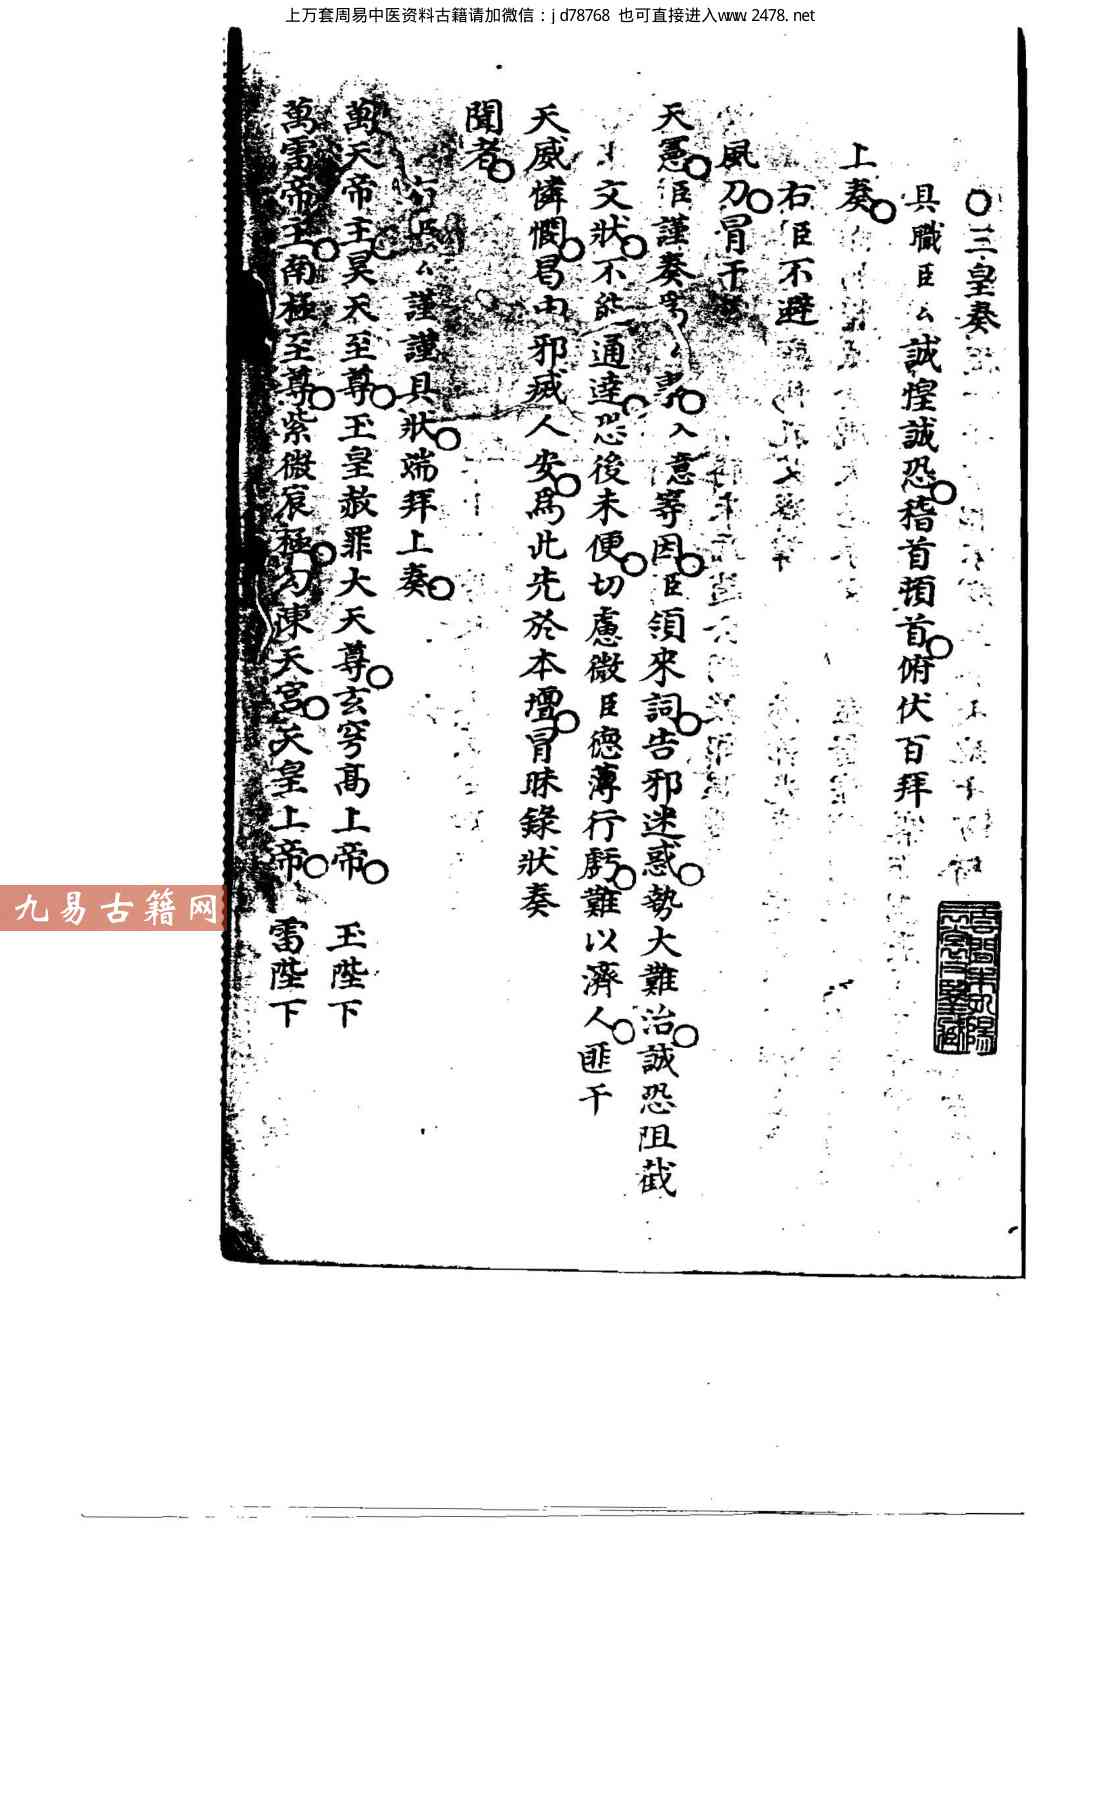 上万套周易中医资料古籍请加微信：jd78768 也可直接进入www.2478.net
○三皇奏
具職臣厶誠惶誠恐稽首頓首俯伏百拜
上奏
右臣不避
風刀冒干
天憲臣謹奏爲厶入意等因臣領來詞告邪迷惑勢大難治誠恐阻截
文狀不能通達恐後未便切慮微臣德薄行虧難以濟人匪干
天威憐憫曷由邪滅人安爲此先於本壇冒昧錄狀奏
聞者
右臣厶謹謹具狀端拜上奏
萬天帝主昊天至尊玉皇赦罪大天尊玄穹髙上帝 玉陛下
萬雷帝主南極至尊紫微宸極勾陳天宮天皇上帝 雷陛下
九易古籍网